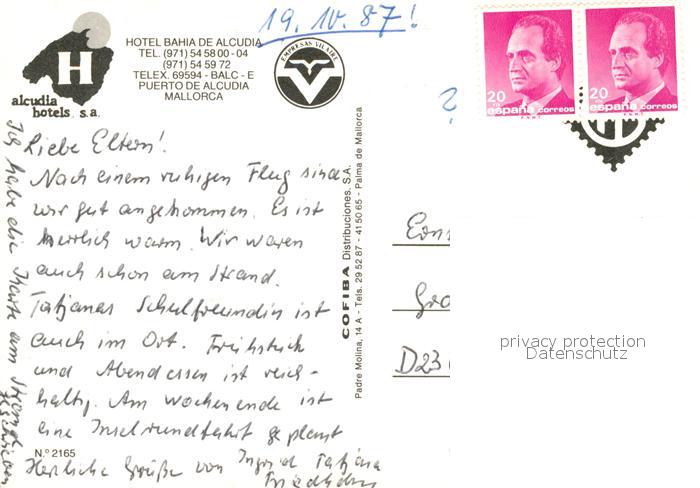 19.10.87!
HOTEL BAHIA DE ALCUDIA
TEL. (971) 54 58 00 - 04
(971) 54 59 72
TELEX. 69594 - BALC - E
PUERTO DE ALCUDIA
MALLORCA
H
alcudia
hotels, s.a.
EMPRESAS VILAIRE
20
españa correos
F.N.M.T.
20
españa correos
F.N.M.T.
?
Liebe Eltern!
Nach einem ruhigen Flug sind
wir gut angekommen. Es ist
herrlich warm. Wir waren
auch schon am Strand.
Tatjanas Schulfreundin ist
auch im Ort. Frühstück
und Abendessen ist reich-
haltig. Am Wochenende ist
eine Inselrundfahrt geplant
Herzliche Grüße von Ingrid Tatjana
Ich habe die Karte am Strand
geschrieben
N.º 2165
COFIBA Distribuciones, S.A.
Padre Molina, 14 A - Tels. 29 52 87 - 41 50 65 - Palma de Mallorca
Gro
D23
privacy protection
Datenschutz